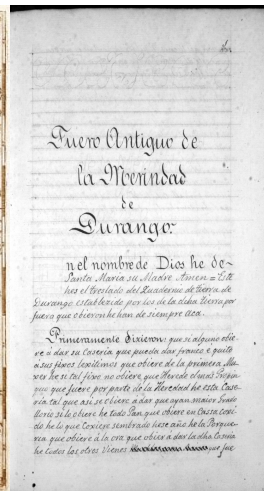 Fuero Antiguo de
la Merindad
de
Durango.
nel nombre de Dios he de
Santa Maria su Madre Amen = Este
hes el treslado del Quaderno de tierra de
Durango establezido por los de la dicha tierra por
fuero que obieron he han de siempre aca.
Primeramente dixieron: que si alguno obie
re a dar su caseria que pueda dar franco e quito
a sus fixos lexitimos que obiere de la primera Mu
xer he si tal fixo no obiere que Herede el mas Propin
quo que fuere por parte de la Heredad he esta Case
ria tal que asi se obiere a dar que ayan maior
si le obiere he todo Pan que obiere en Cassa coxi
do he lo que toviere sembrado hese año he la Porque
ria que obiere a la ora que obier a dar la dha Caseria
he todos los otros Vienes por fue